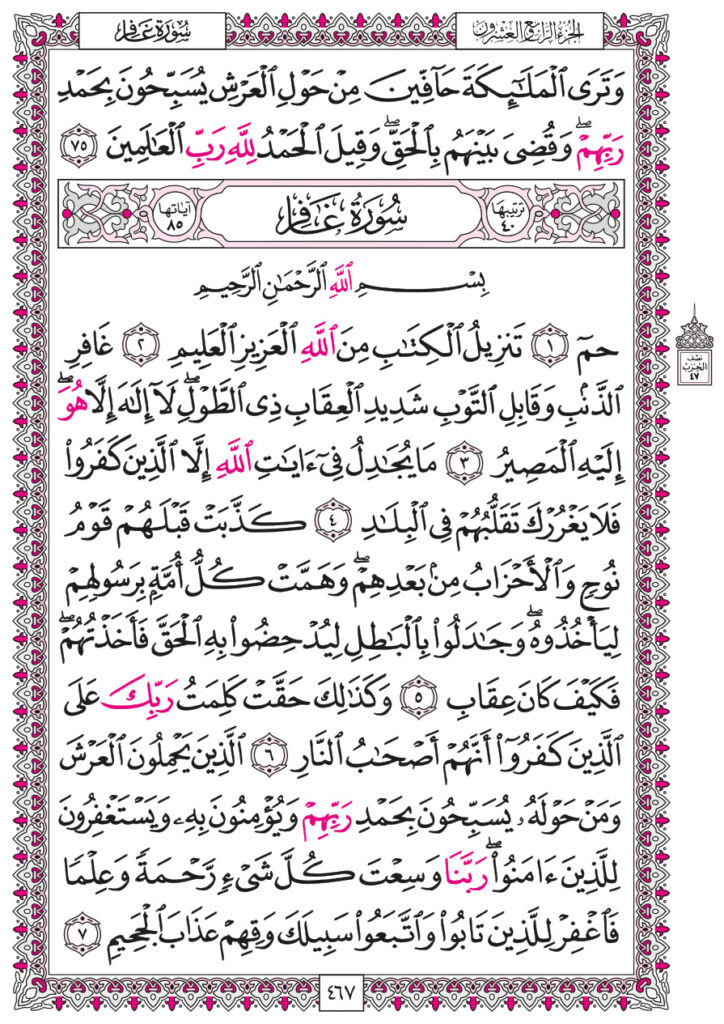 سُورَةُ غَافِرٍ
الجُزْءُ الرَّابِعُ وَالعِشْرُونَ
وَتَرَى ٱلْمَلَـٰٓئِكَةَ حَآفِّينَ مِنْ حَوْلِ ٱلْعَرْشِ يُسَبِّحُونَ بِحَمْدِ
رَبِّهِمْ ۖ وَقُضِىَ بَيْنَهُم بِٱلْحَقِّ ۖ وَقِيلَ ٱلْحَمْدُ لِلَّهِ رَبِّ ٱلْعَـٰلَمِينَ ٧٥
ترتيبها ٤٠ سُورَةُ غَافِرٍ آياتها ٨٥
بِسْمِ ٱللَّهِ ٱلرَّحْمَـٰنِ ٱلرَّحِيمِ
حمٓ ١ تَنزِيلُ ٱلْكِتَـٰبِ مِنَ ٱللَّهِ ٱلْعَزِيزِ ٱلْعَلِيمِ ٢ غَافِرِ
ٱلذَّنۢبِ وَقَابِلِ ٱلتَّوْبِ شَدِيدِ ٱلْعِقَابِ ذِى ٱلطَّوْلِ ۖ لَآ إِلَـٰهَ إِلَّا هُوَ ۖ
إِلَيْهِ ٱلْمَصِيرُ ٣ مَا يُجَـٰدِلُ فِىٓ ءَايَـٰتِ ٱللَّهِ إِلَّا ٱلَّذِينَ كَفَرُوا۟
فَلَا يَغْرُرْكَ تَقَلُّبُهُمْ فِى ٱلْبِلَـٰدِ ٤ كَذَّبَتْ قَبْلَهُمْ قَوْمُ
نُوحٍ وَٱلْأَحْزَابُ مِنۢ بَعْدِهِمْ ۖ وَهَمَّتْ كُلُّ أُمَّةٍۭ بِرَسُولِهِمْ
لِيَأْخُذُوهُ ۖ وَجَـٰدَلُوا۟ بِٱلْبَـٰطِلِ لِيُدْحِضُوا۟ بِهِ ٱلْحَقَّ فَأَخَذْتُهُمْ ۖ
فَكَيْفَ كَانَ عِقَابِ ٥ وَكَذَٰلِكَ حَقَّتْ كَلِمَتُ رَبِّكَ عَلَى
ٱلَّذِينَ كَفَرُوٓا۟ أَنَّهُمْ أَصْحَـٰبُ ٱلنَّارِ ٦ ٱلَّذِينَ يَحْمِلُونَ ٱلْعَرْشَ
وَمَنْ حَوْلَهُۥ يُسَبِّحُونَ بِحَمْدِ رَبِّهِمْ وَيُؤْمِنُونَ بِهِۦ وَيَسْتَغْفِرُونَ
لِلَّذِينَ ءَامَنُوا۟ ۖ رَبَّنَا وَسِعْتَ كُلَّ شَىْءٍ رَّحْمَةً وَعِلْمًا
فَٱغْفِرْ لِلَّذِينَ تَابُوا۟ وَٱتَّبَعُوا۟ سَبِيلَكَ وَقِهِمْ عَذَابَ ٱلْجَحِيمِ ٧
نصف
الحزب
٤٧
٤٦٧